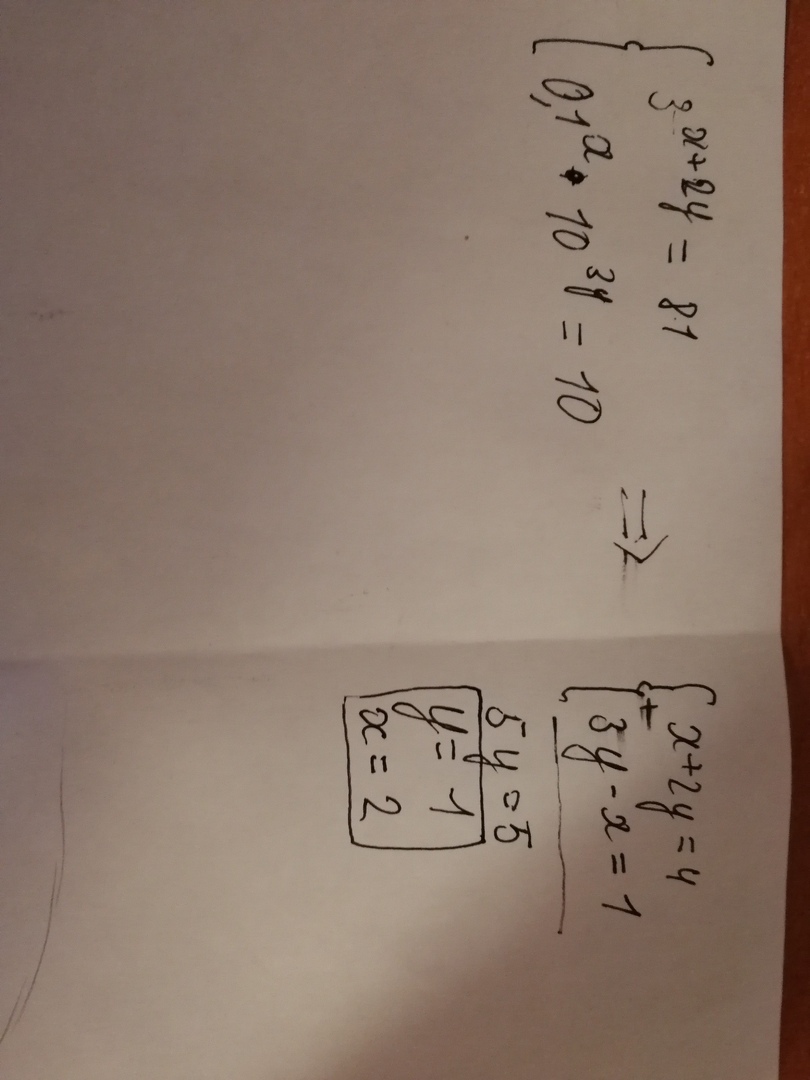 3^{x+2y} = 81
0,1^x · 10^{3y} = 10
=>
x+2y=4
+
3y-x=1
5y=5
y=1
x=2